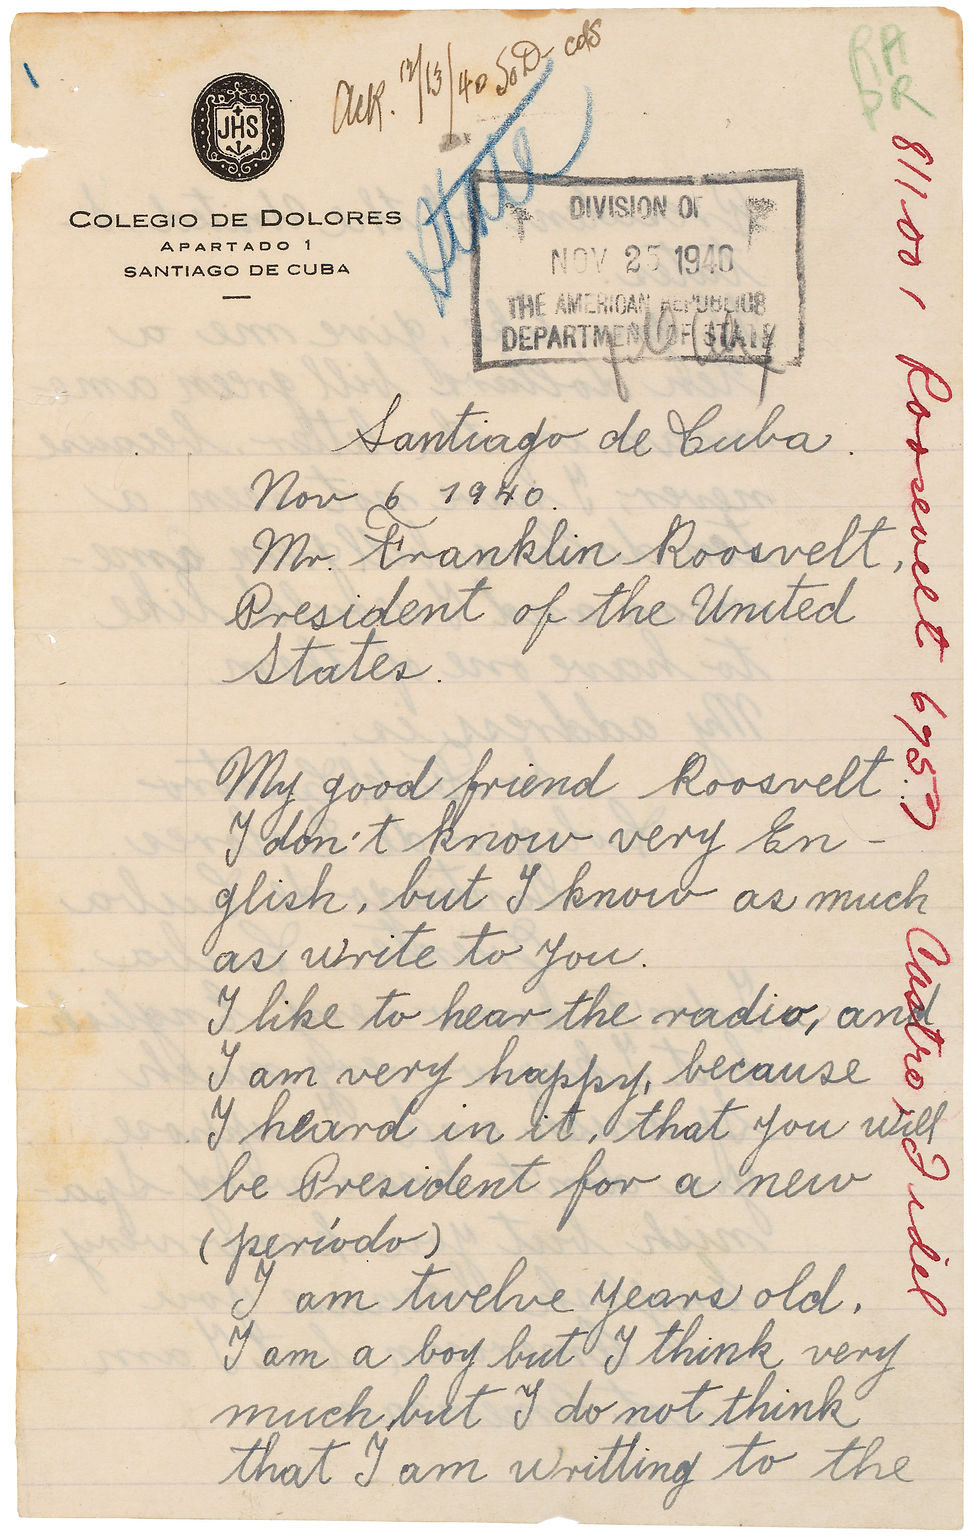 JHS
COLEGIO DE DOLORES
APARTADO 1
SANTIAGO DE CUBA
Ack. 12/13/40
State
RA
DIVISION OF
NOV 25 1940
THE AMERICAN REPUBLICS
DEPARTMENT OF STATE
811.001 Roosevelt 6957
Castro, Fidel
Santiago de Cuba.
Nov 6 1940.
Mr. Franklin Roosvelt,
President of the United
States.
My good friend Roosvelt
I don't know very En-
glish, but I know as much
as write to you.
I like to hear the radio, and
I am very happy, because
I heard in it, that you will
be President for a new
(período)
I am twelve years old.
I am a boy but I think very
much but I do not think
that I am writting to the